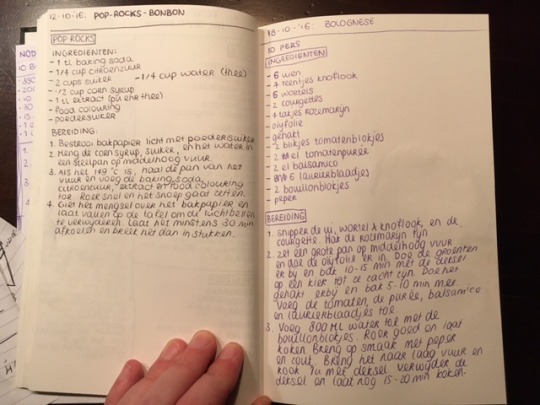 12-10-'16: POP-ROCKS-BONBON
POP ROCKS
INGREDIENTEN:
- 1 tl baking soda
- 1/4 cup citroenzuur
- 1/4 cup water (thee)
- 2 cups suiker
- 1/2 cup corn syrup
- 1 tl extract
- food colouring
- poedersuiker
BEREIDING:
1. Bestrooi bakpapier licht met poedersuiker
2. Meng de corn syrup, suiker, en het water in
een steelpan op middelhoog vuur.
3. Als het 149°C is, haal de pan van het
vuur en voeg de baking soda,
citroenzuur, extract en food colouring
toe. Roer snel en het snoep gaat zetten.
4. Giet het mengsel over het bakpapier en
laat vallen op de tafel om de luchtbellen
te verwijderen. Laat het minstens 30 min
afkoelen en breek het dan in stukken.
18-10-'16: BOLOGNESE
10 PERS
INGREDIENTEN
- 6 uien
- 4 teentjes knoflook
- 6 wortels
- 2 courgettes
- 4 takjes rozemarijn
- olijfolie
- gehakt
- 2 blikjes tomatenblokjes
- 2 el tomatenpuree
- 2 el balsamico
- 6 laurierblaadjes
- 2 bouillonblokjes
- peper
BEREIDING
1. Snipper de ui, wortel & knoflook, en de
courgette. Hak de rozemarijn fijn
2. Zet een grote pan op middelhoog vuur
en doe de olijfolie er in. Doe de groenten
erby en bak 10-15 min met de deksel
op een kier tot ze zacht zijn. Doe het
gehakt erby en bak 5-10 min mee.
Voeg de tomaten, de puree, balsamico
en laurierblaadjes toe
3. Voeg 800 ML water toe met de
bouillonblokjes. Roer goed en laat
koken. Breng op smaak met peper
en zout. Breng het naar laag vuur en
kook 1u met deksel. Verwijder de
deksel en laat nog 15-20 min koken.